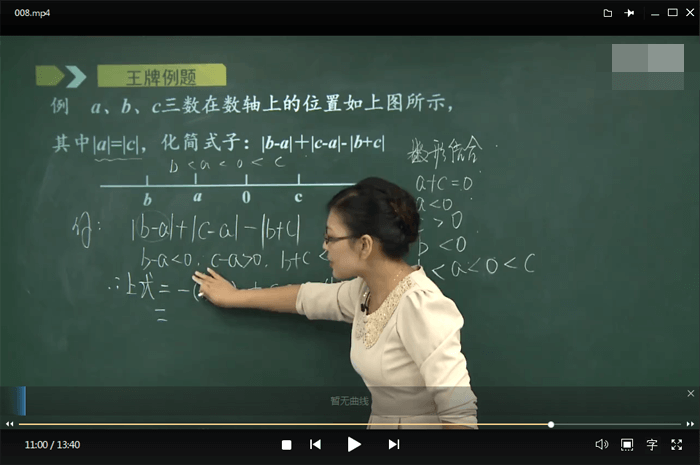 008.mp4
王牌例题
例 a、b、c三数在数轴上的位置如上图所示，
其中|a|=|c|，化简式子：|b-a|＋|c-a|-|b+c|
数形结合
b<a<0<c
a+c=0
b a 0 c
a<0
|b-a|+|c-a|-|b+c|
>0
b-a<0, c-a>0, b+c<
<0
<a<0<c
∴上式=-(
=
暂无曲线
11:00 / 13:40
字